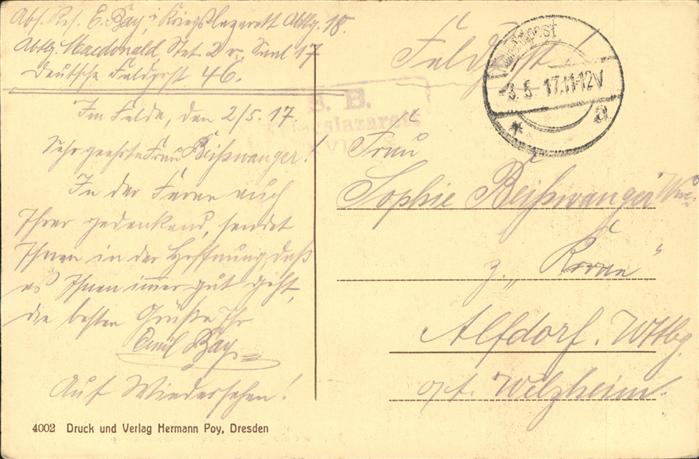 Abs. Rs. E. Bay, i. Kriegslazarett Abtlg. 18.
Abtlg. Macdonald Stat. Dr., Saal 17
Deutsche Feldpost 46.
Im Felde, den 2/5.17.
Sehr geehrte Frau Beißwanger!
In der Ferne auch
Ihrer gedenkend, sendet
Ihnen in der Hoffnung daß
es Ihnen immer gut geht,
die besten Grüße Ihr
Emil Bay
Auf Wiedersehen!
4002 Druck und Verlag Hermann Poy, Dresden
S. B.
Kriegslazarett
Feldpost
-3.5.17.11-12V
a
Feldpost!
Frau
Sophie Beißwanger
z. „Krone“
Alfdorf. Wttbg.
o/a. Welzheim.